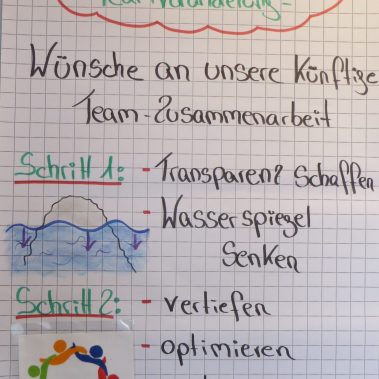 Wünsche an unsere Künftige
Team-Zusammenarbeit
Schritt 1: - Transparenz Schaffen
- Wasserspiegel
Senken
Schritt 2: - vertiefen
- optimieren